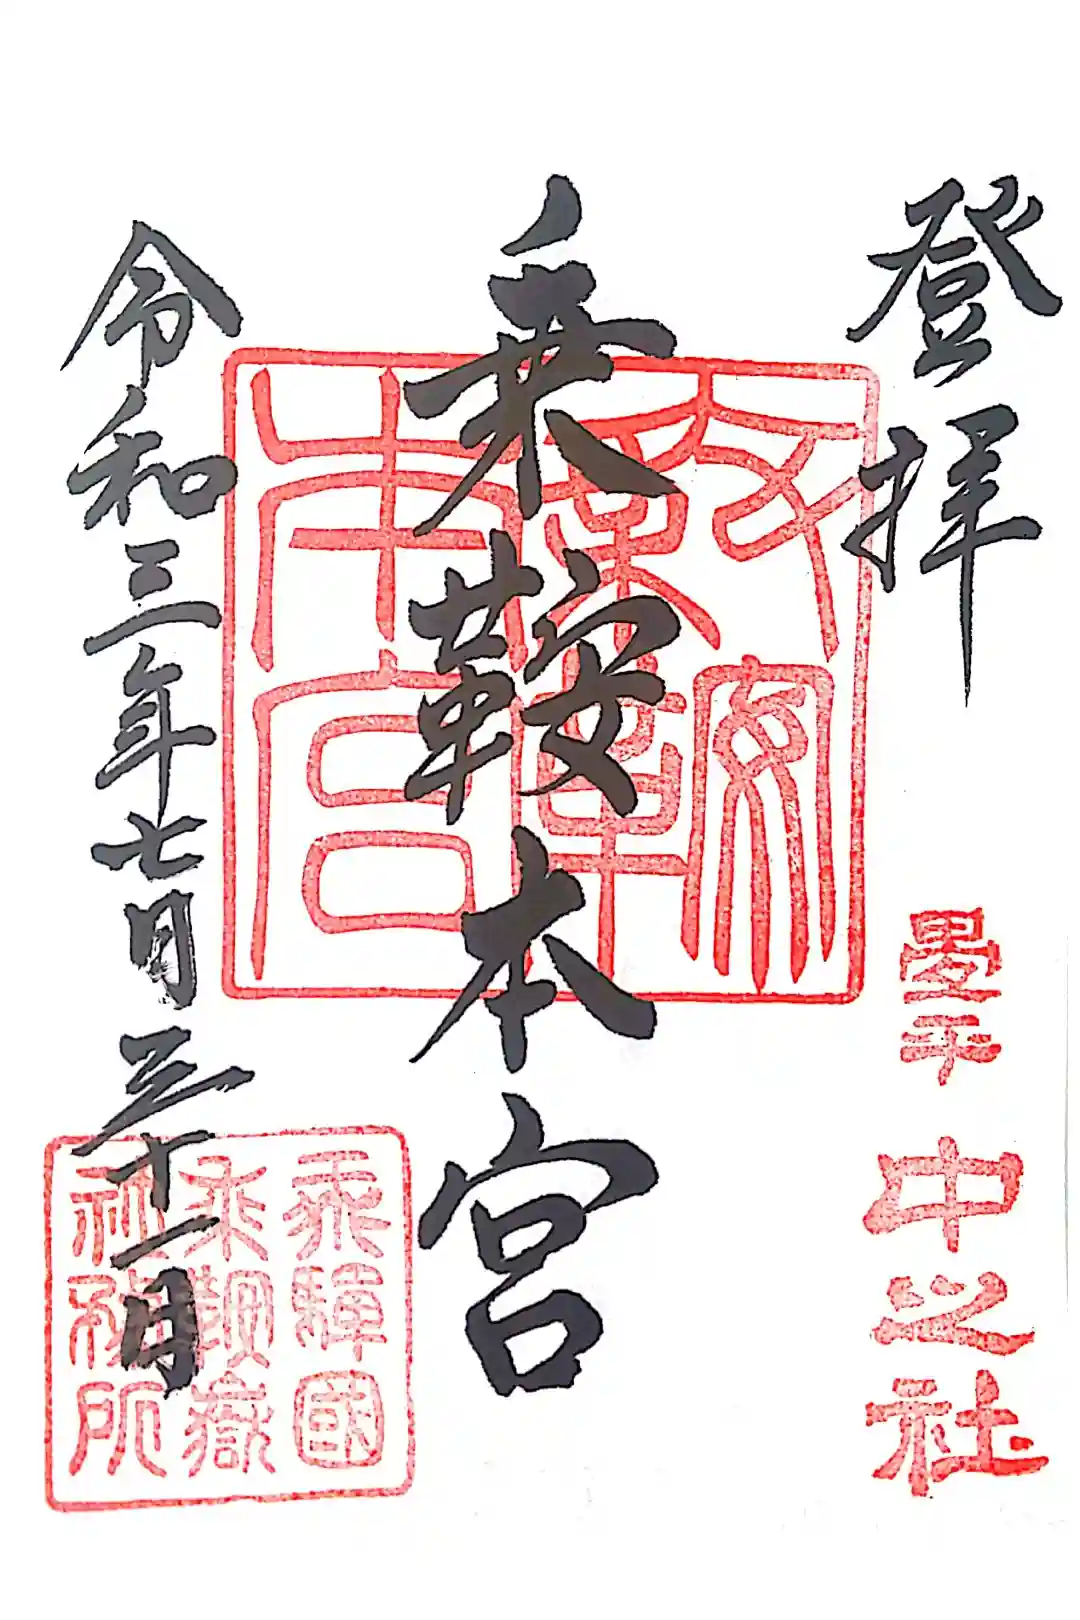 登拝
畳平
中之社
乗鞍本宮
令和三年七月三十一日
飛騨國
乗鞍嶽
社務所